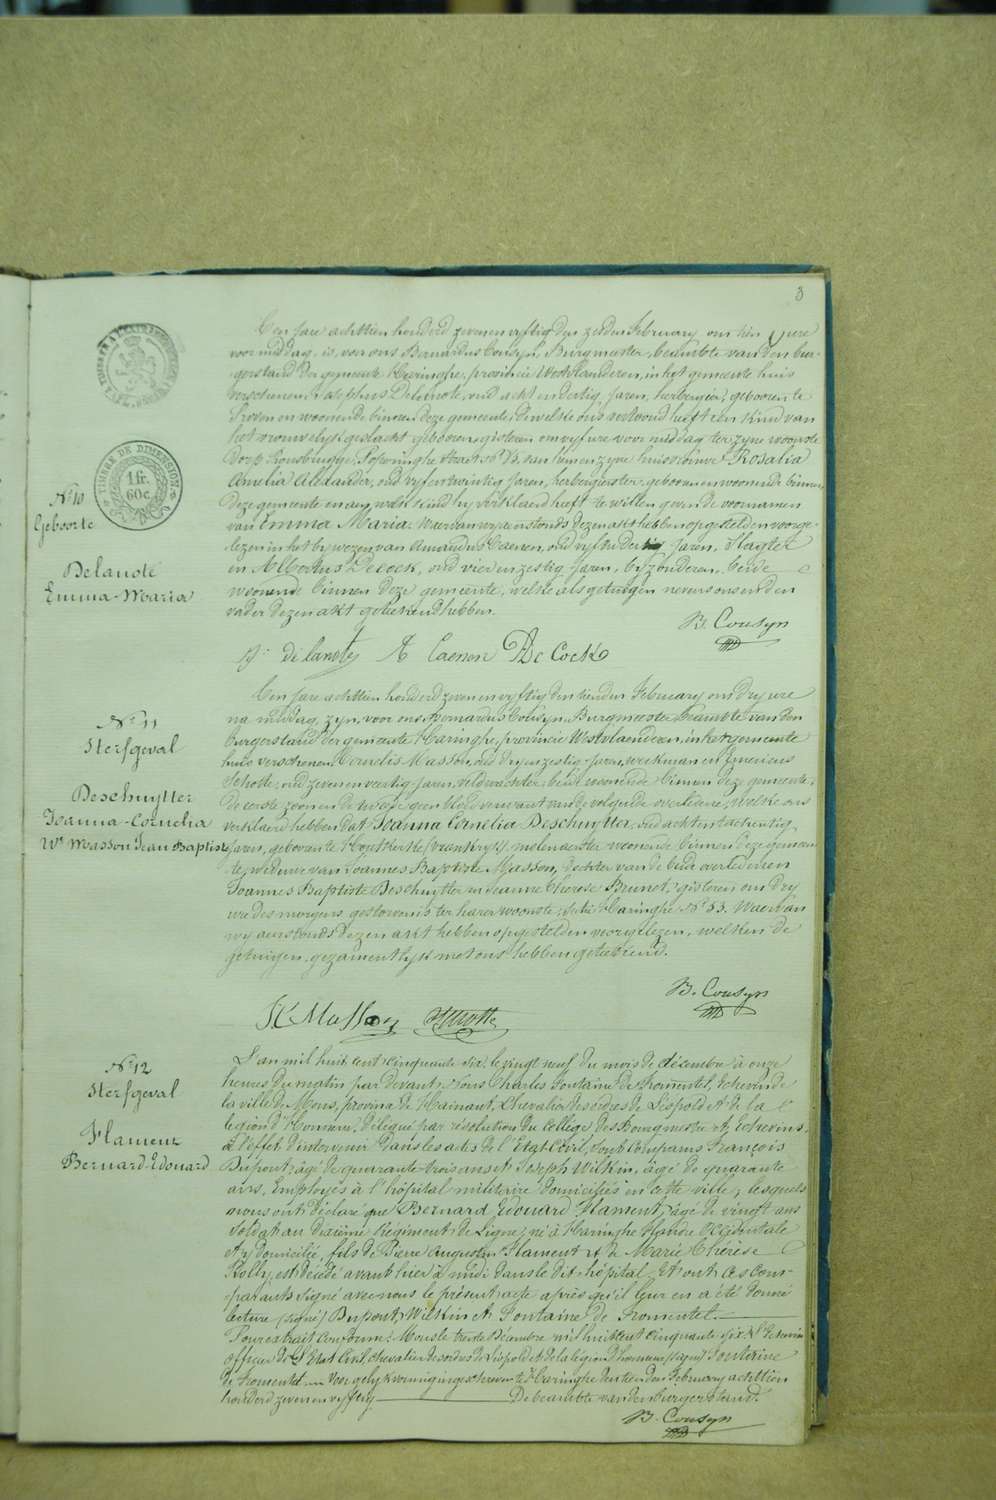 3
Een jare achttien honderd zeven en vyftig den zesden February, om tien ure
voormiddag, is, voor ons Bernardus Cousyn, Burgmeester, beämbte van den bur-
gerstand der gemeente Haringhe, provincie Westvlaenderen, in het gemeente huis
verschenen Delanote, oud acht en dertig jaren, herbergier, gebooren te
en woonende binnen deze gemeente, dewelke ons vertoond heeft een kind van
het vrouwelyk geslacht gebooren gisteren om vyf ure voor middag ter zyne woonste
dorp Rousbrugge, Poperinghe straet No 73, van hem en zyne huisvrouwe Rosalia
Amelia Alexander, oud vyf en twintig jaren, herbergierster, gebooren en woonende binnen
deze gemeente en aen welk kind hy verklaerd heeft te willen geven de voornamen
van Emma Maria. Waervan wy aenstonds dezen akt hebben opgesteld en voorge-
lezen in het bywezen van Amandus Caenen, oud vyf en dertig jaren,
en Albertus Decock, oud vier en zestig jaren, byzonderen, beide
woonende binnen deze gemeente, welke als getuigen nevens ons en den
vader dezen akt geteekend hebben.
B. Cousyn
delanote A Caenen A De Cock
TIMBRE DE DIMENSION
1 fr.
60 c.
No 10
Geboorte
Delanote
Emma-Maria
Een jare achttien honderd zeven en vyftig den tienden February om dry ure
na middag, zyn, voor ons Bernardus Cousyn, Burgmeester Beambte van den
burgerstand der gemeente Haringhe, provincie Westvlaenderen, in het gemeente
huis verschenen Cornelis Masson, oud dry en zestig jaren, werkman en Amerieus
Schotte, oud zeven en veertig jaren, veldwachter, beide woonende binnen deze gemeente,
de eerste zoon en de tweede geen bloedverwant van de volgende overledene, welke ons
verklaerd hebben dat Joanna Cornelia Deschuytter, oud acht en tachentig
jaren, geboren te Houtkerke (Vrankryk), molenaerster woonende binnen deze gemeen-
te, weduwe van Joannes Baptiste Masson, dochter van de beide overledenen
Joannes Baptiste Deschuytter en Jeanne Therese Brunet, gisteren om dry
ure des morgens gestorven is ter harer woonste, Haringhe No 53. Waervan
wy aenstonds dezen akt hebben opgesteld en voorgelezen, welken de
getuigen gezamentlyk met ons hebben geteekend.
B. Cousyn
Masson Schotte
No 11
Sterfgeval
Deschuytter
Joanna-Cornelia
We Masson Jean Baptiste
L'an mil huit cent cinquante six, le vingt neuf du mois de décembre à onze
heures du matin par devant Nous Charles Fontaine de Fromentel, Echevin de
la ville de Mons, province de Hainaut, Chevalier des ordres de Léopold et de la
légion d'Honneur, délégué par résolution du Collège des Bourgmestre et Echevins,
à l'effet d'intervenir dans les actes de l'Etat Civil, sont comparus François
Dupont, âgé de quarante trois ans et Joseph Wilkin, âgé de quarante
ans, Employés à l'hôpital militaire domiciliés en cette ville; lesquels
nous ont déclaré que Bernard Edouard Flament, âgé de vingt ans
soldat au dixième Régiment de Ligne, né à Haringhe Flandre Occidentale
et y domicilié, fils de Pierre Augustin Flament et de Marie Thérèse
Rolly, est décédé avant hier à midi dans le dit hôpital. Et ont ces com-
parants signé avec nous le présent acte après qu'il leur en a été donné
lecture (signé) Dupont, Wilkin et Fontaine de Fromentel.
Pour extrait conforme: Mons le trente Décembre mil huit cent cinquante six. L'Echevin
officier de l'Etat Civil, chevalier des ordres de Léopold et de la légion d'honneur (signé) Fontaine
de Fromentel. Voor gelykvormig ingeschreven te Haringhe den tienden February achttien
honderd zeven en vyftig De beambte van den burgerstand.
B. Cousyn
No 12
Sterfgeval
Flament
Bernard-Edouard